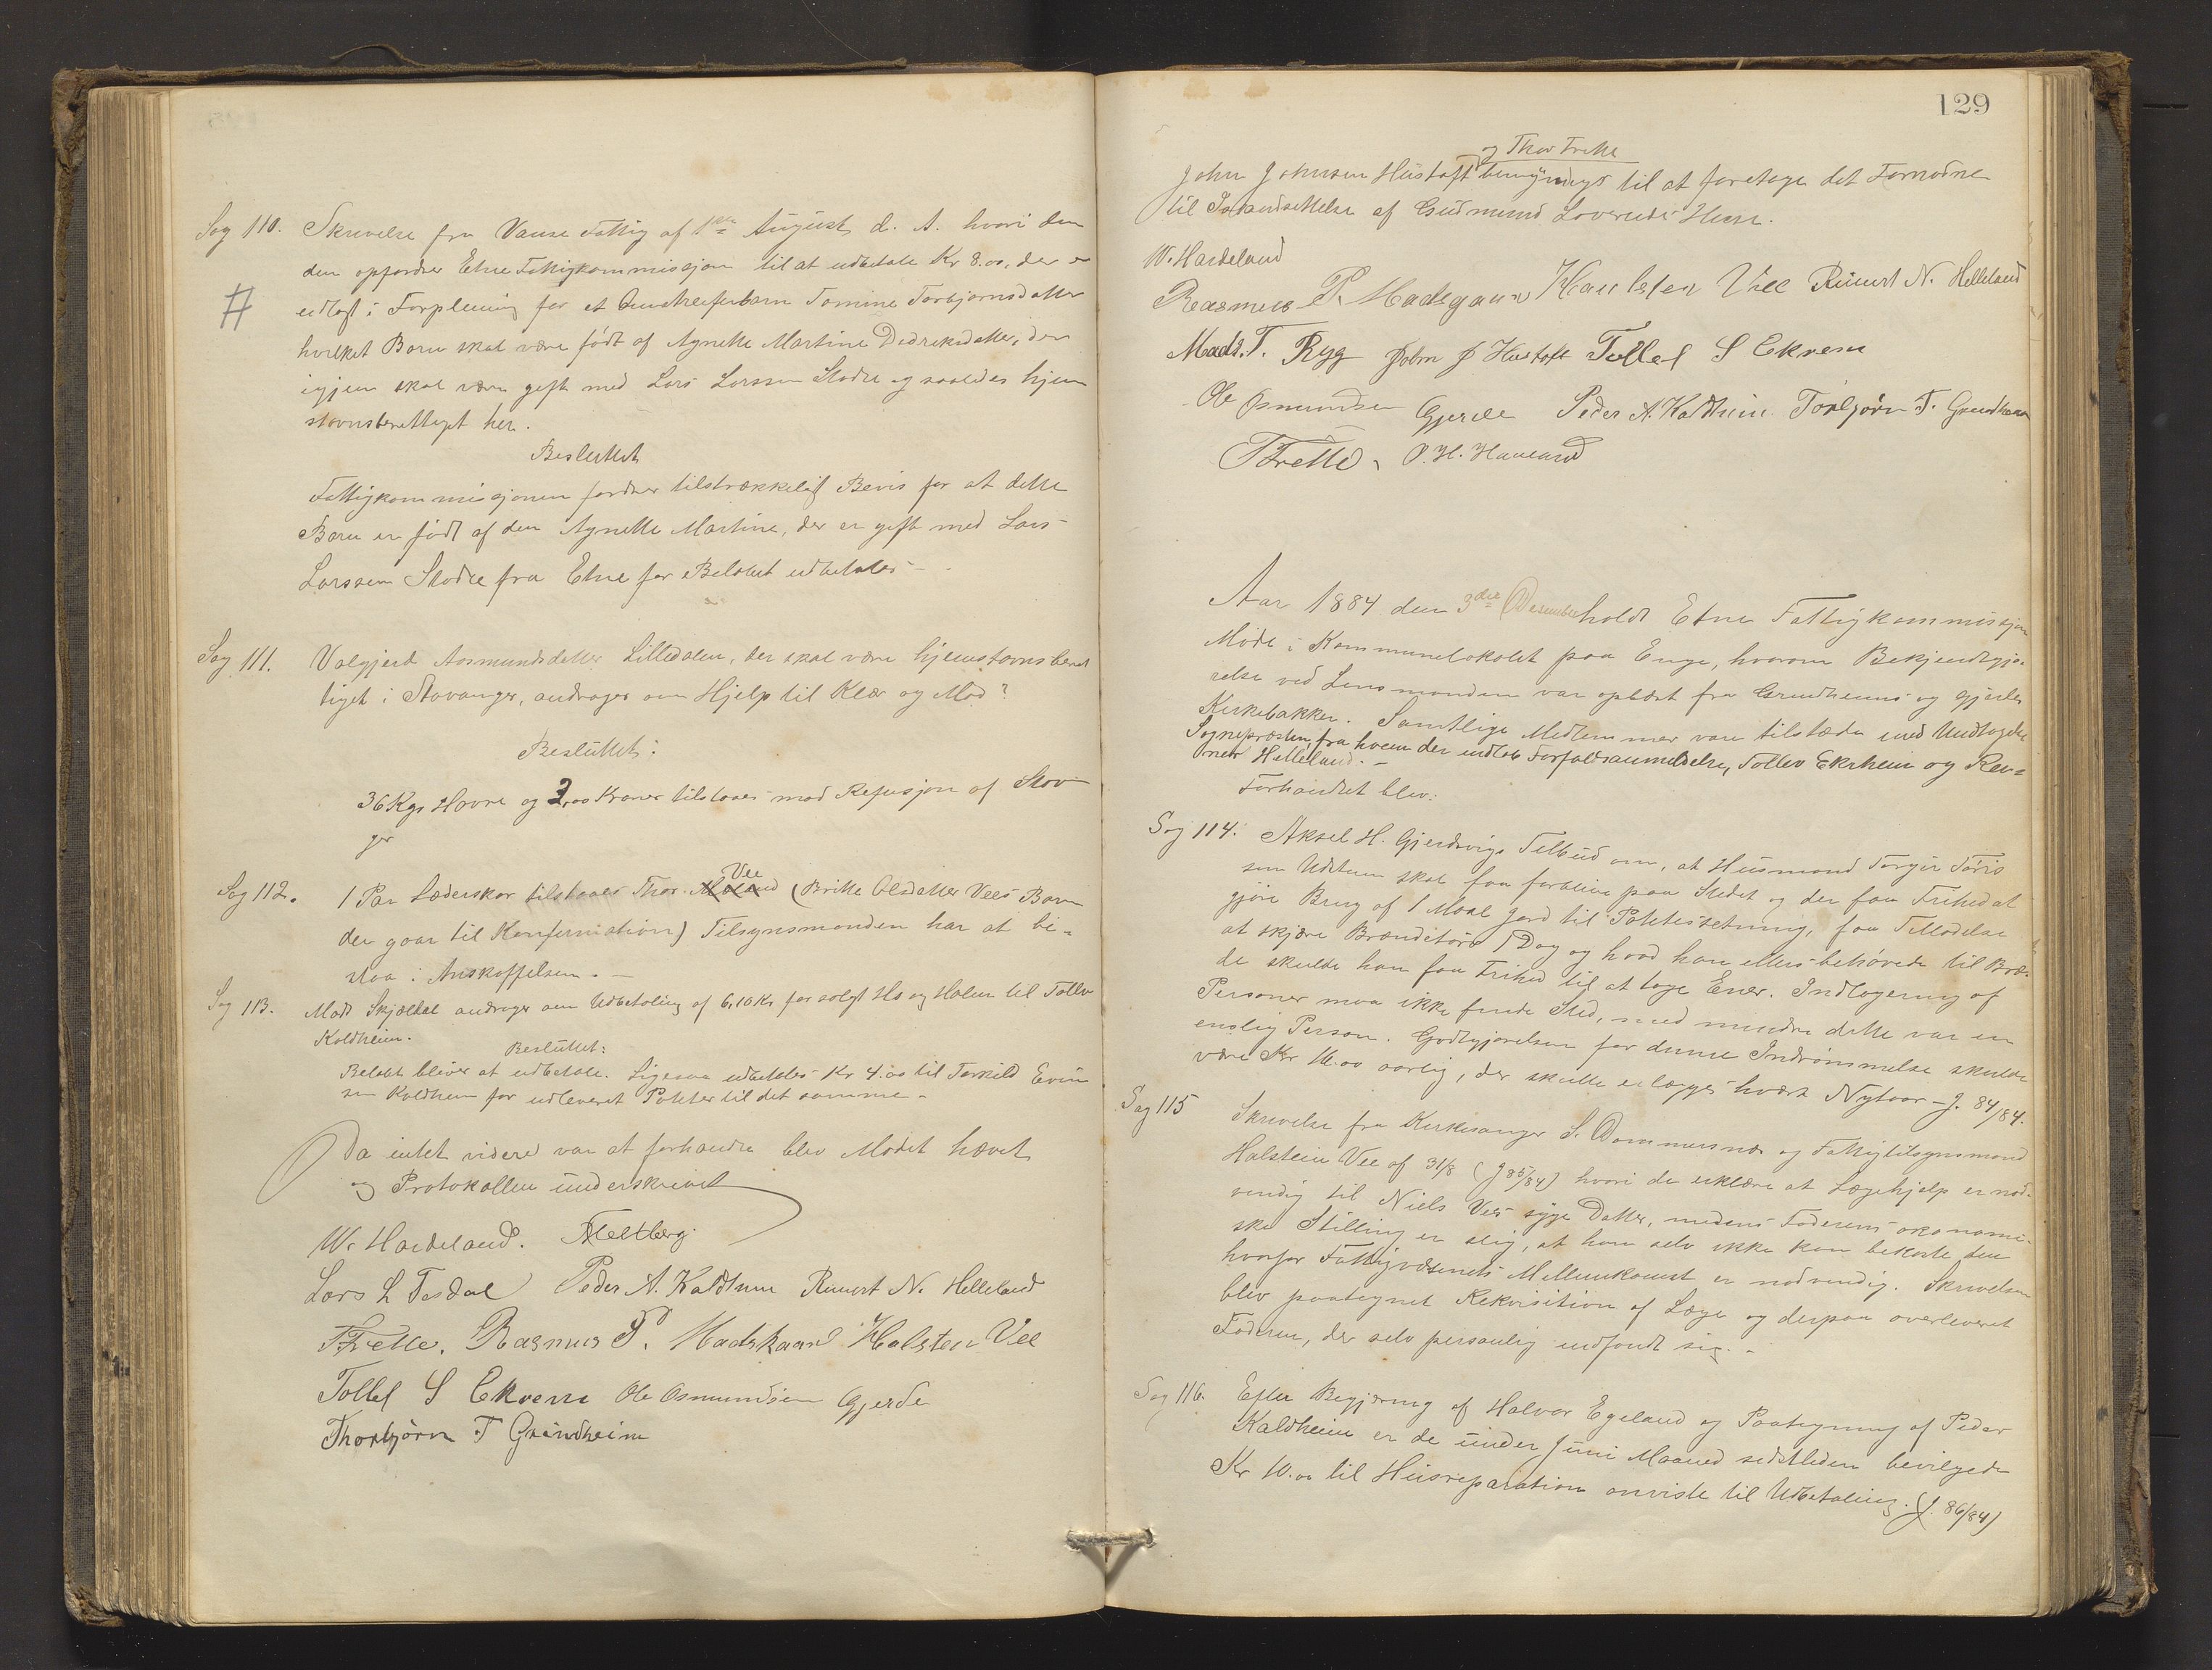 Sag 110. Skrivelse fra Vanse Fattig af 1ste August d. A. hvori den
den opfordrer Etne Fattigkommissjon til at udbetale Kr 8.00, der er
udlagt i Forpleining for et Barn Tomine Torbjørnsdatter
hvilket Barn skal være födt af Agnette Martine Didreksdatter, der
igjen skal være gift med Lars Larssen Stodre og saaledes hjem
stavnsberettiget her.
Besluttet
Fattigkommissjonen fordrer tilstrækkeligt Bevis for at dette
Barn er födt af den Agnette Martine, der er gift med Lars
Larssen Stodre fra Etne før Beløbet udbetales -
Sag 111. Valgjerd Aasmundsdatter Lilledalen, der skal være hjemstavnsberet
tiget i Stavanger, andrager om Hjelp til Klær og Mad?
Besluttet:
36 Kgr Havre og 2,00 Kroner tilstaaes mod Refusjon af Stav
ger
Vee
Sag 112. 1 Par Læderskor tilstaaes Thor (Britte Olsdatter Vees Barn
der gaar til Konfirmation) Tilsynsmanden har at bi-
staa i Anskaffelsen. -
Sag 113. Mads Skjældal andrager om Udbetaling af 6,10 Kr for solgt Hø og Halm til Tollev
Kaldheim.
Besluttet:
Beløbet bliver at udbetale. Ligesaa udbetales Kr 4.00 til Torkild Evin
sen Kaldheim for udleveret Poteter til det samme -
Da intet videre var at forhandle blev Mødet hævet
og Protokollen underskrevet
W. Hardeland. Meltberg
Lars L Tesdal Peder A. Kaldheim Reinert N. Helleland
TFrette. Rasmus P. Madskaard Halsten Vee
Tollef S Ekrem Ole Osmundsen Gjerde
Thorbjörn T Grindheim
129
og Thor Frette
John Johnsen Hustoft bemyndiges til at foretage det Fornødne
til Istandsættelse af Gudmund Løveruds Huse.
W. Hardeland
Rasmus P. Madsgaard Haulsten Vee Reinert N. Helleland
Mads. T. Ryg John J Hustoft Tollef S Ekrem
Ole Osmundsen Gjerde Peder A. Kaldheim Torbjørn T. Grindheim
TFrette. O. H. Haaland
Aar 1884 den 3die Desember holdt Etne Fattigkommissjon
Möde i Kommunelokalet paa Enge, hvorom Bekjendtgjø-
relse ved Lensmanden var oplæst fra Grindheims og Gjerdes
Kirkebakker. Samtlige Medlemmer vare tilstæde med Undtagelse
Sognepræsten, fra hvem der indløb Forfaldsanmeldelse, Tollev Ekrheim og Rei=
nert Helleland. -
Forhandlet blev:
Sag 114. Aksel H. Gjerdsvigs Tilbud om, at Husmand Torger Töris
sen Udstum skal faa forblive paa Stedet og der faa Frihed at
gjöre Brug af 1 Maal Jord til Potetessetning, faa Tilladelse
at skjære Brændetörv 1 Dag og hvad han ellers behövede til Bræn
de skulde han faa Frihed til at tage Ener. Indlogering af
Personer maa ikke finde Sted, med mindre dette var en
enslig Person. Godtgjørelsen for denne Indrömmelse skulde
være Kr 16.00 aarlig, der skulle erlægges hvært Nytaar - J. 84/84.
Sag 115 Skrivelse fra Kirkesanger S. Dommersnes og Fattigtilsynsmand
Halstein Vee af 31/8 (J 85/84) hvori de erklære at Lægehjelp er nød-
vendig til Niels Vees syge Datter, medens Faderens økonomi-
ske Stilling er slig, at han selv ikke kan bekoste den
hvorfor Fattigvæsenets Mellemkomst er nødvendig. Skrivelsen
blev paategnet Rekvisition af Læge og derpaa overleveret
Faderen, der selv personlig indfandt sig. -
Sag 116. Efter Begjæring af Halvor Egeland og Paategning af Peder
Kaldheim er de under Juni Maaned sidstleden bevilgede
Kr 10.00 til Husreparation anviste til Udbetaling. (J. 86/84)